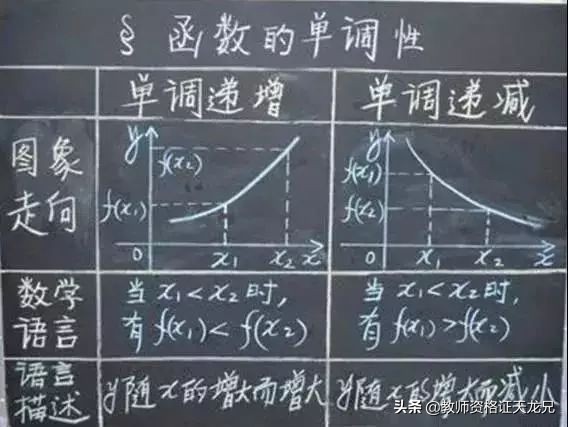 § 函数的单调性
单调递增 单调递减
图象
走向
y f(x2) f(x1) 0 x1 x2 x
y f(x1) f(x2) 0 x1 x2 x
数学
语言
当 x1<x2 时,
有 f(x1)<f(x2)
当 x1<x2时,
有 f(x1)>f(x2)
语言
描述
y随x的增大而增大
y随x的增大而减小
头条 @教师资格证天龙兄